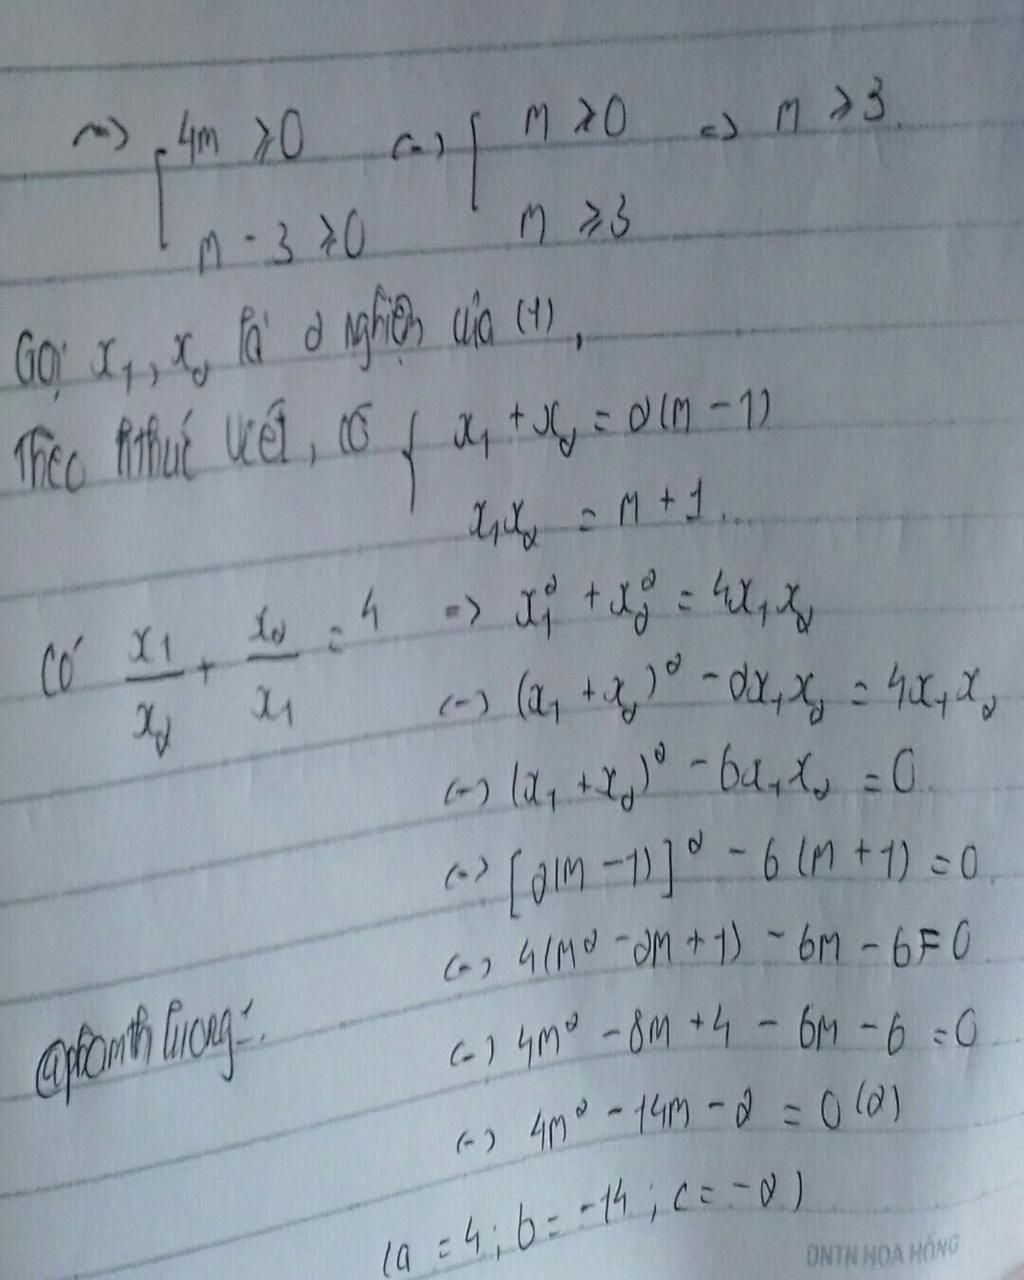 => [ 4m ≥ 0 <=> [ m ≥ 0 => m ≥ 3.
m - 3 ≥ 0 m ≥ 3
Gọi x₁, x₂ là 2 nghiệm của (1),
Theo hthức Viét, có { x₁ + x₂ = 2(m - 1)
x₁x₂ = m + 1.
Có x₁/x₂ + x₂/x₁ = 4 => x₁² + x₂² = 4x₁x₂
<=> (x₁ + x₂)² - 2x₁x₂ = 4x₁x₂
<=> (x₁ + x₂)² - 6x₁x₂ = 0.
<=> [2(m - 1)]² - 6(m + 1) = 0.
<=> 4(m² - 2m + 1) - 6m - 6 = 0
<=> 4m² - 8m + 4 - 6m - 6 = 0
<=> 4m² - 14m - 2 = 0 (2)
(a = 4; b = -14; c = -2)
DNTN HOA HỒNG